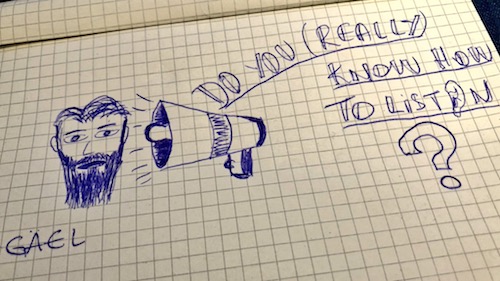 DO YOU (REALLY)
KNOW HOW
TO LISTEN
?
GAEL